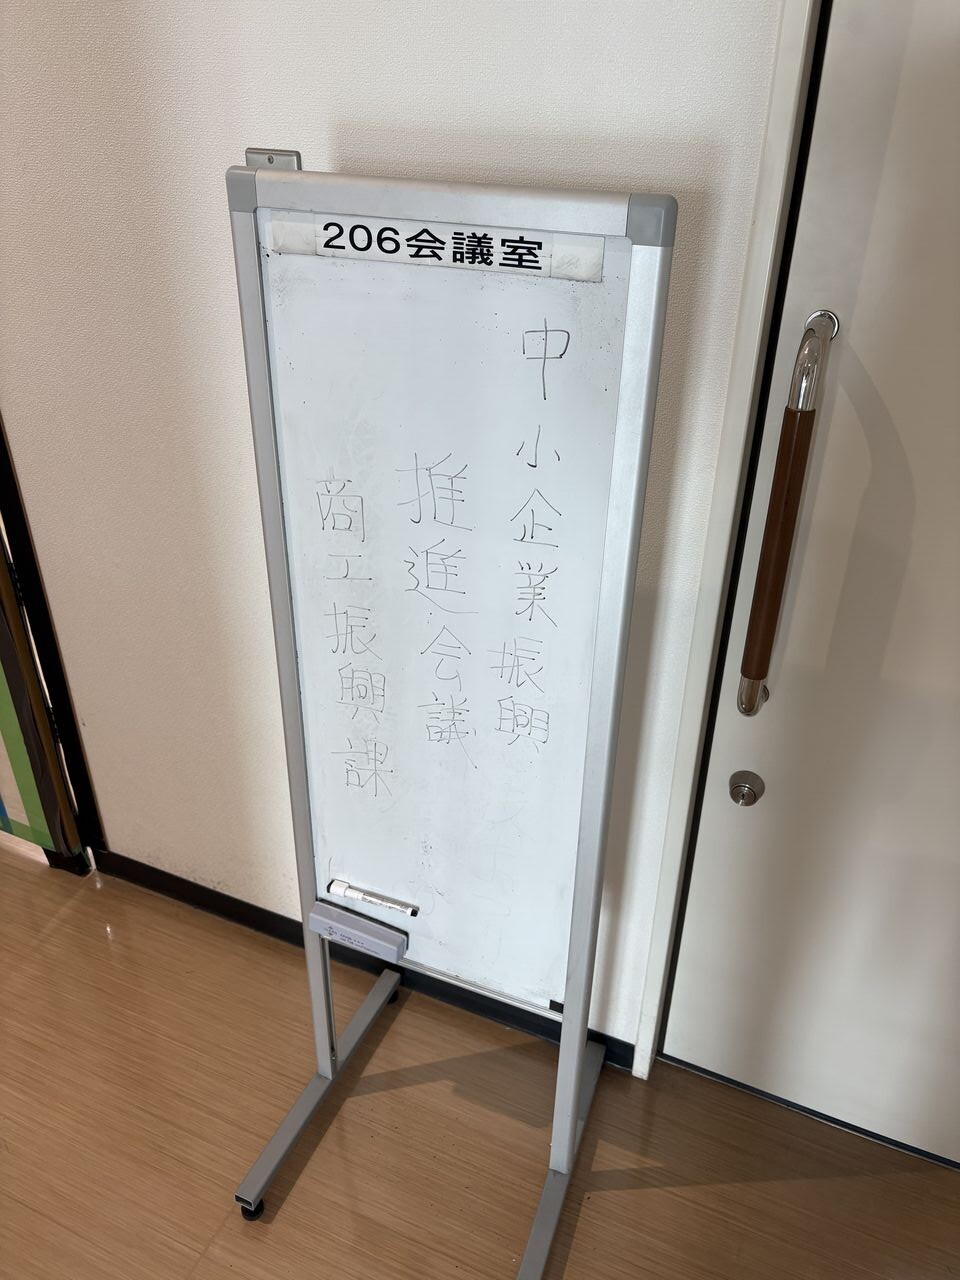 206会議室
中小企業振興
推進会議
商工振興課